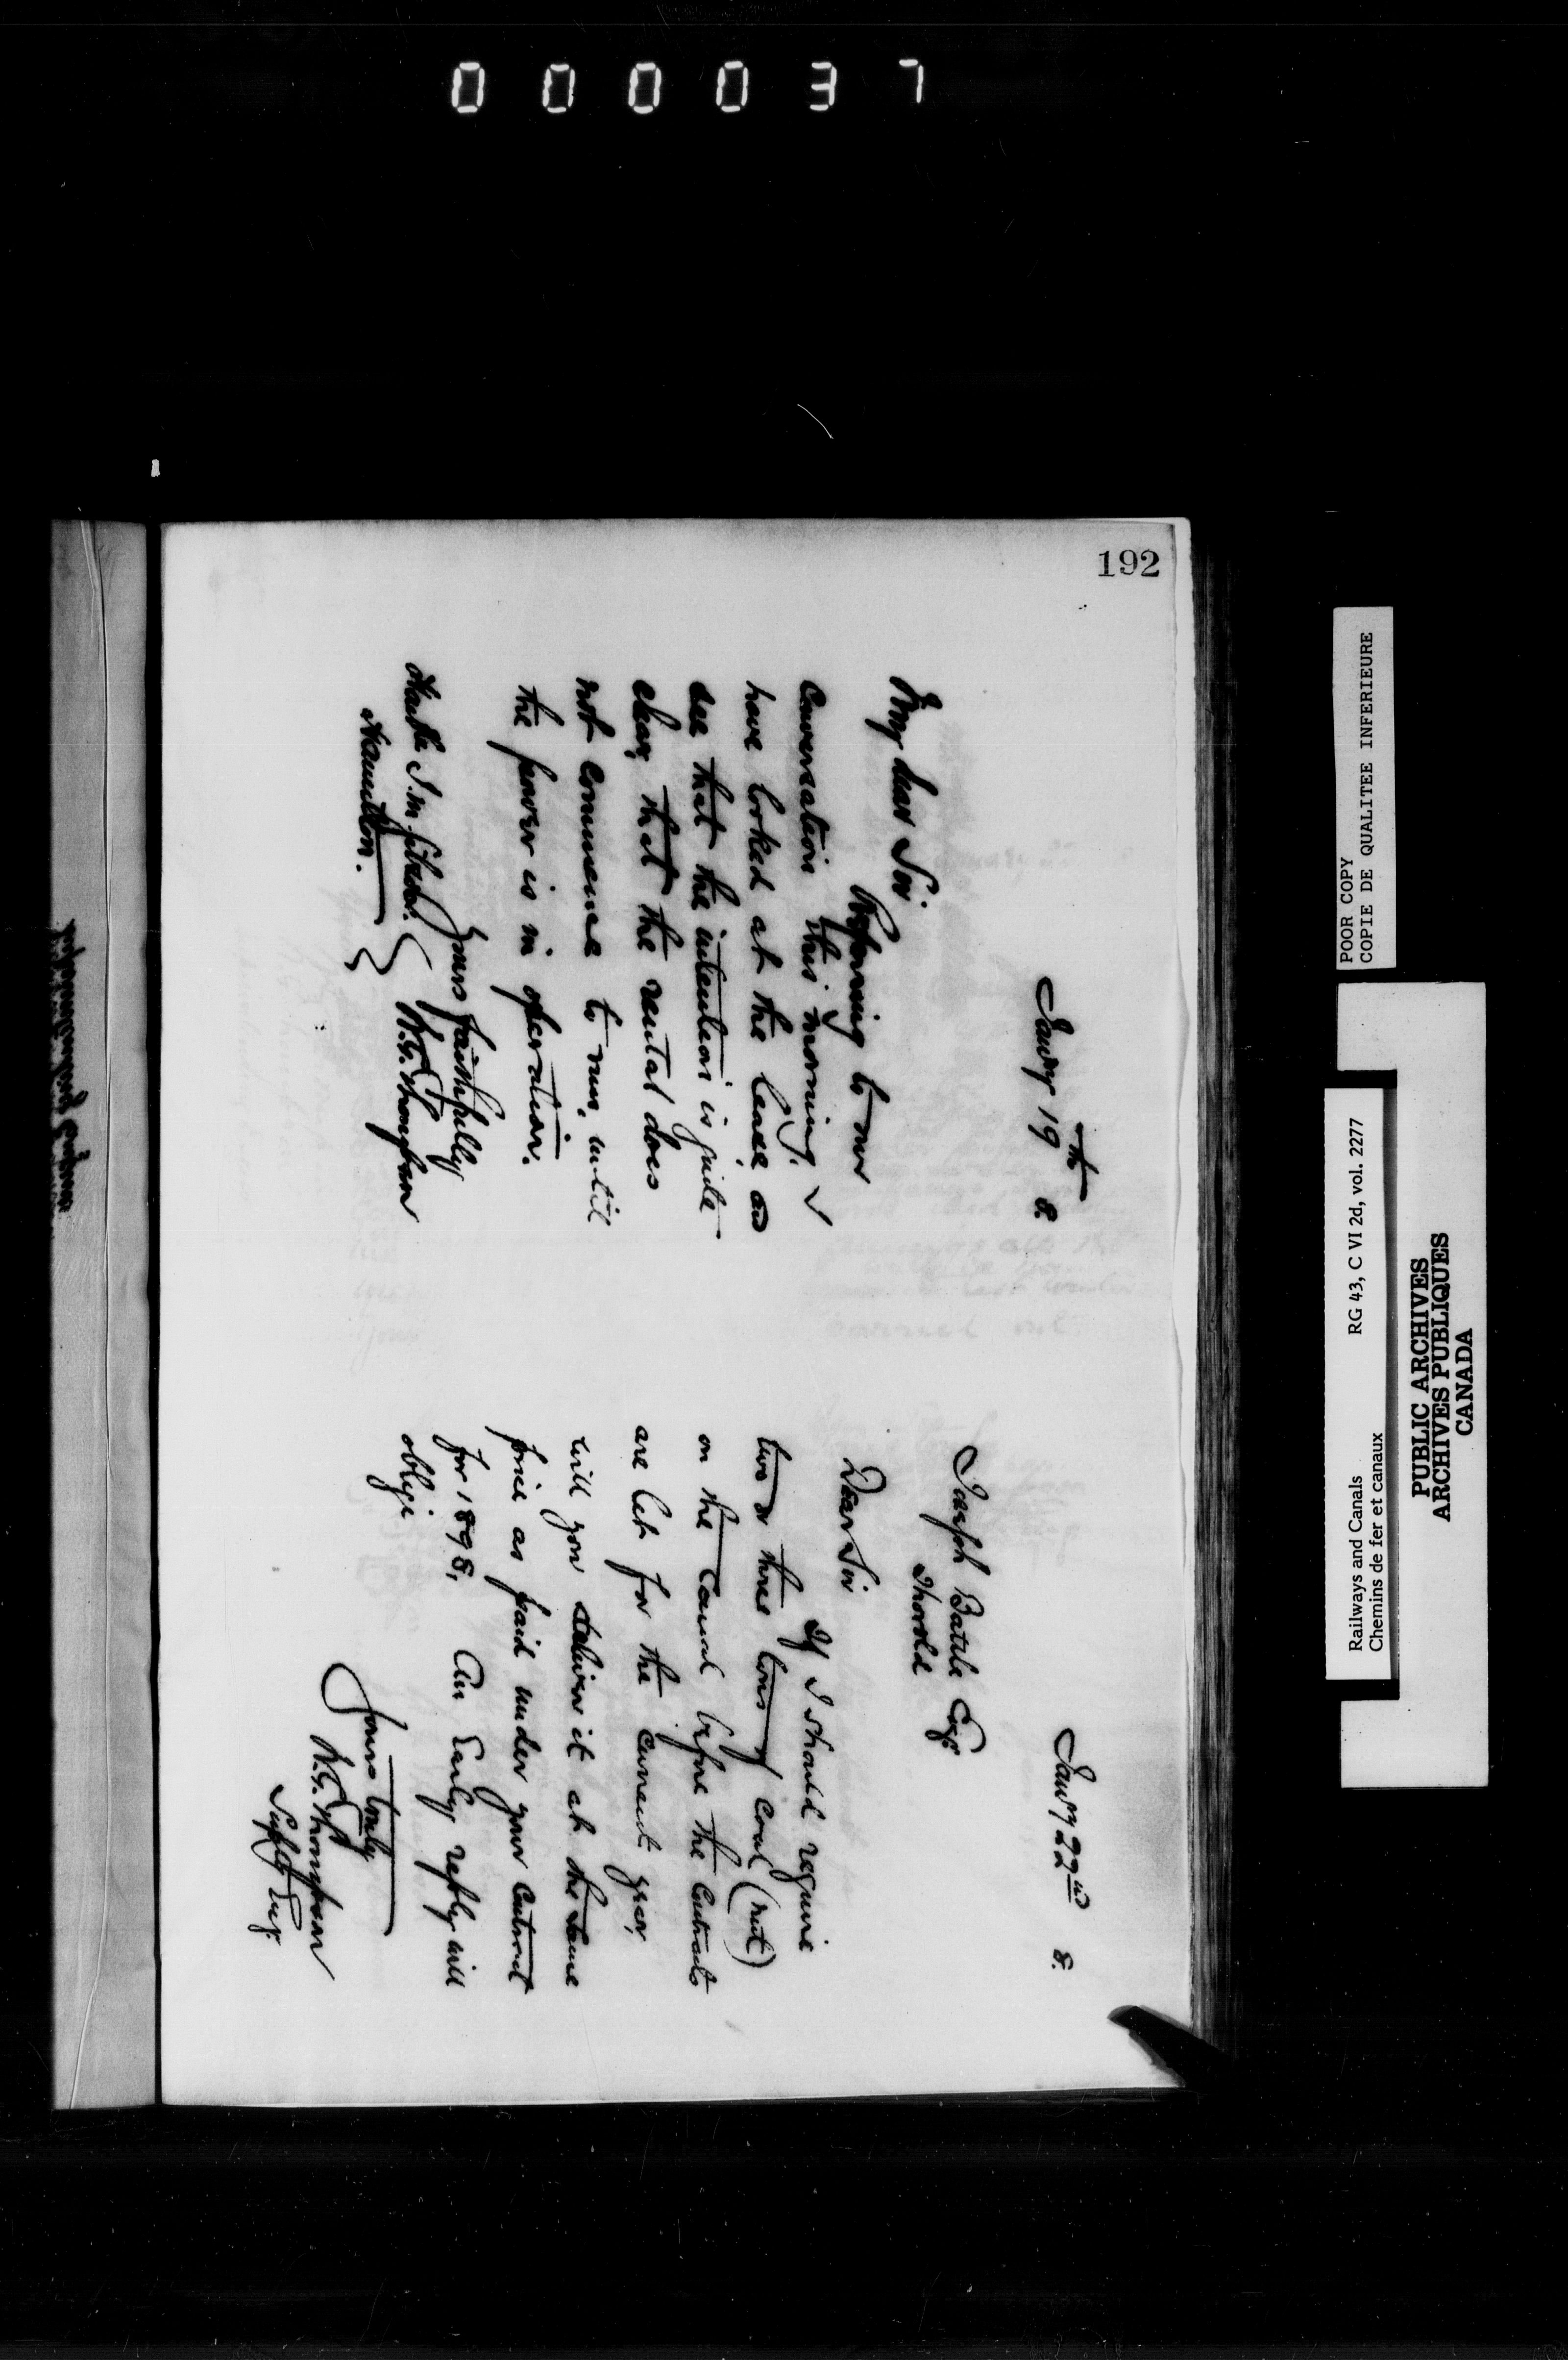 000037
192
Jany 19th 8.
My dear Sir
Referring to our
conversation this morning, I
have looked at the lease and
see that the intention is quite
clear, that the rental does
not commence to run, until
the power is in operation.
Yours faithfully
W.G. Thompson
Hamilton.
Jany 22nd 8.
Joseph Battle Esq.
Thorold
Dear Sir
If I should require
two or three tons of coal (nut)
on the Canal before the Contracts
are let for the current year,
will you deliver it at the same
price as paid under your contract
for 1898, An Early reply will
oblige
Yours truly
W.G. Thompson
Suptg Eng.
POOR COPY
COPIE DE QUALITEE INFERIEURE
Railways and Canals RG 43, C VI 2d, vol. 2277
Chemins de fer et canaux
PUBLIC ARCHIVES
ARCHIVES PUBLIQUES
CANADA